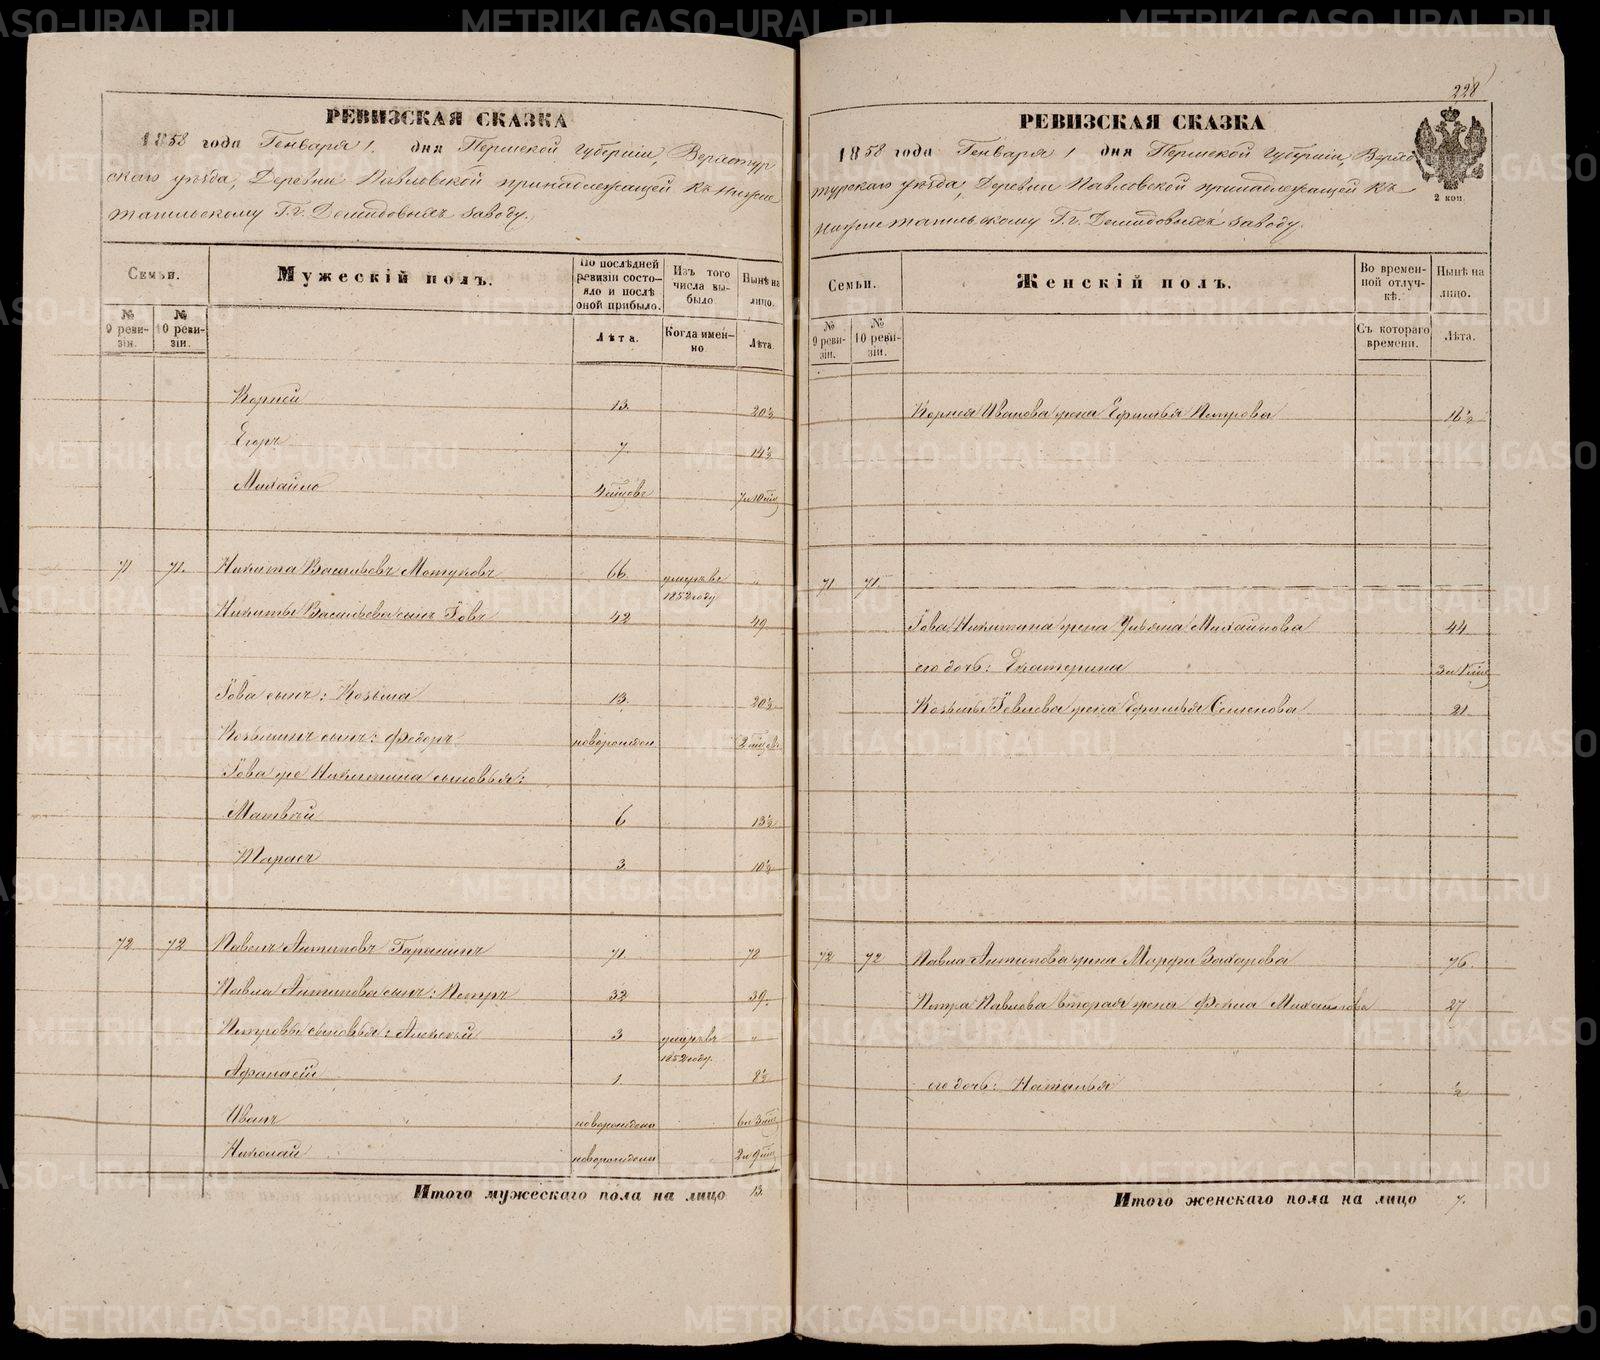 РЕВИЗСКАЯ СКАЗКА
1858 года Генваря 1. дня Пермской Губернии, Верхотур
скаго уѣзда, Деревни Павловской принадлежащей къ Нижне
тагильскому Г.г. Демидовыхъ заводу.
Семьи.
№ 9 реви-
зіи.
№ 10 реви-
зіи.
Мужескій полъ.
По послѣдней
ревизіи состо-
яло и послѣ
оной прибыло.
Лѣта.
Изъ того
числа вы-
было.
Когда имен-
но
Нынѣ на
лицо.
Лѣта.
Корней 13. 20½
Егоръ 7. 14½
Михайло 4 мѣсяцовъ 7 и 10 мѣс
71 71. Никита Васильевъ 66. умеръ въ 1852 году „
Никиты Васильева сынъ Іовъ 42 49
Іова сынъ: Козьма 13. 20½
Козьминъ сынъ: Федоръ новорожден 2 мѣсяцовъ
Іова же Никитина сыновья:
Матвѣй 6 13½
Тарасъ 3 10½
72 72 Павелъ Антиповъ 71. 78
Павла Антипова сынъ: Петръ 32 39.
Петровы сыновья: Алексѣй 3 умеръ въ 1852 году. „
Афанасій 1. 8½
Иванъ новорожденъ 6 и 3 мѣс
Николай новорожденъ 2 и 9 мѣс
Итого мужескаго пола на лицо 13.
228
РЕВИЗСКАЯ СКАЗКА
1858 года Генваря 1 дня Пермской Губерніи, Верхо
турскаго уѣзда, Деревни Павловской принадлежащей къ
Нижнетагильскому Г.г. Демидовыхъ заводу.
2 коп.
Семьи.
№ 9 реви-
зіи.
№ 10 реви-
зіи.
Женскій полъ.
Во времен-
ной отлуч-
кѣ.
Съ котораго
времени.
Нынѣ на
лицо.
Лѣта.
Корнея Иванова жена Ефимья Петрова 18½
71 71.
Іова Никитина жена Ульяна Михайлова 44
его дочь: Екатерина 3 и 1 мѣс
Козьмы Іевлева жена Ефимья Семенова 21
72 72 Павла Антипова жена Марфа Захарова 76.
Петра Павлова вторая жена Фекла Михайлова 27
его дочь: Наталья ½
Итого женскаго пола на лицо 7.
METRIKI.GASO-URAL.RU